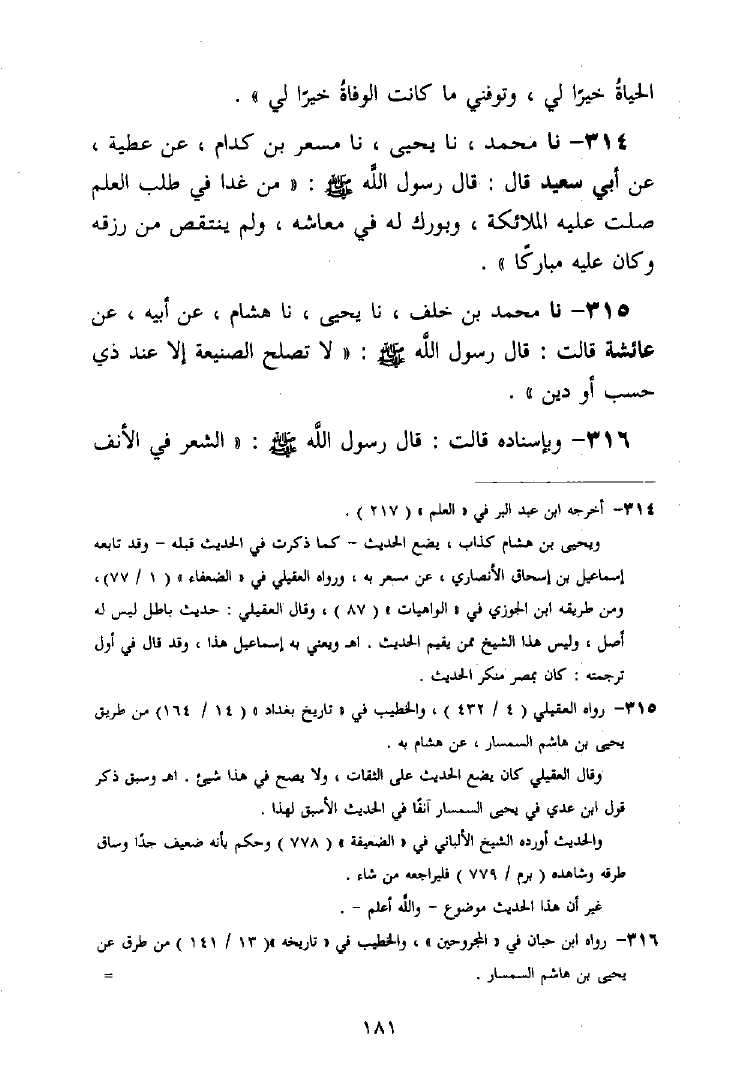 الحياةُ خيرًا لي ، وتوفني ما كانت الوفاةُ خيرًا لي » .
٣١٤- نا محمد ، نا يحيى ، نا مسعر بن كدام ، عن عطية ،
عن أبي سعيد قال : قال رسول اللَّه ﷺ : « من غدا في طلب العلم
صلت عليه الملائكة ، وبورك له في معاشه ، ولم ينتقص من رزقه
وكان عليه مباركًا » .
٣١٥- نا محمد بن خلف ، نا يحيى ، نا هشام ، عن أبيه ، عن
عائشة قالت : قال رسول اللَّه ﷺ : « لا تصلح الصنيعة إلا عند ذي
حسب أو دين » .
٣١٦- وبإسناده قالت : قال رسول اللَّه ﷺ : « الشعر في الأنف
٣١٤- أخرجه ابن عبد البر في « العلم » ( ٢١٧ ) .
ويحيى بن هشام كذاب ، يضع الحديث - كما ذكرت في الحديث قبله - وقد تابعه
إسماعيل بن إسحاق الأنصاري ، عن مسعر به ، ورواه العقيلي في « الضعفاء » ( ١ / ٧٧) ،
ومن طريقه ابن الجوزي في « الواهيات » ( ٨٧ ) ، وقال العقيلي : حديث باطل ليس له
أصل ، وليس هذا الشيخ ممن يقيم الحديث . اهـ ويعني به إسماعيل هذا ، وقد قال في أول
ترجمته : كان بمصر منكر الحديث .
٣١٥- رواه العقيلي ( ٤ / ٤٣٢ ) ، والخطيب في « تاريخ بغداد » ( ١٤ / ١٦٤) من طريق
يحيى بن هاشم السمسار ، عن هشام به .
وقال العقيلي كان يضع الحديث على الثقات ، ولا يصح في هذا شيئ . اهـ وسبق ذكر
قول ابن عدي في يحيى السمسار آنفًا في الحديث الأسبق لهذا .
والحديث أورده الشيخ الألباني في « الضعيفة » ( ٧٧٨ ) وحكم بأنه ضعيف جدًا وساق
طرقه وشاهده ( برم / ٧٧٩ ) فليراجعه من شاء .
غير أن هذا الحديث موضوع - واللَّه أعلم - .
٣١٦- رواه ابن حبان في « المجروحين » ، والخطيب في « تاريخه »( ١٣ / ١٤١ ) من طرق عن
يحيى بن هاشم السمسار . =
١٨١